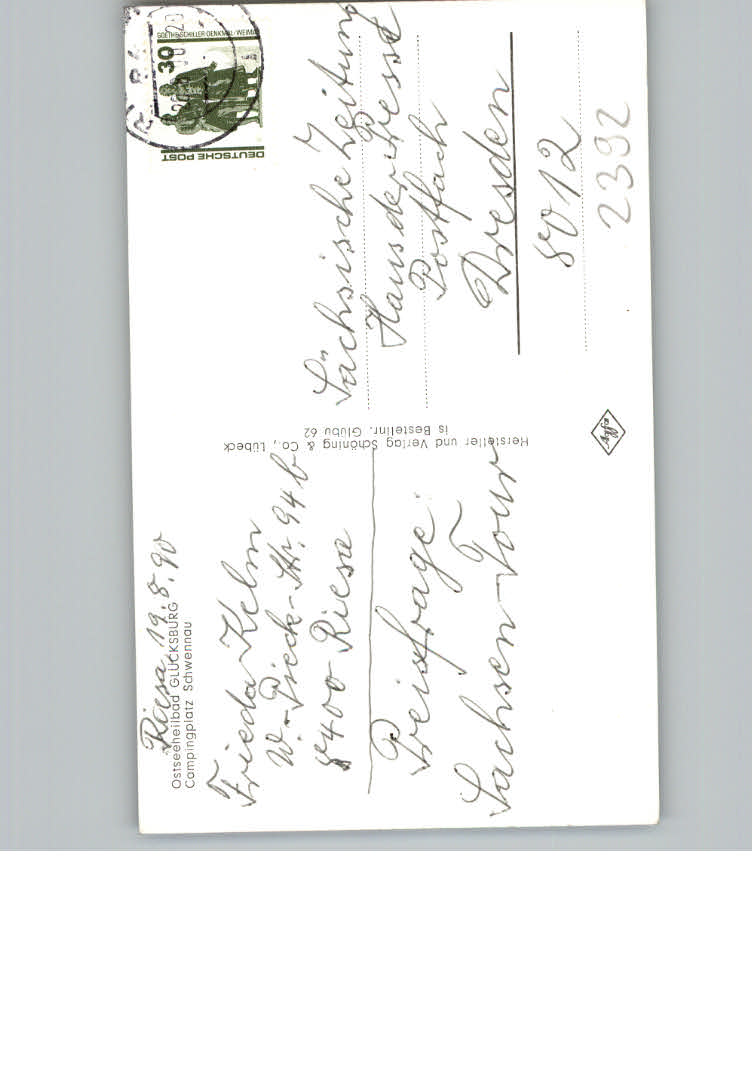 Riesa, 19.8.90
Ostseeheilbad GLÜCKSBURG
Campingplatz Schwennau
Frieda Kelm
W.-Pieck-Str. 94b
8400 Riesa
Preisfrage:
Sachsen-Tour
Hersteller und Verlag Schöning & Co., Lübeck
is Bestellnr. Glübu 62
DEUTSCHE POST
30
GOETHE-SCHILLER-DENKMAL/WEIMAR
Sächsische Zeitung
Haus der Presse
Postfach
Dresden
8012
2392
Agfa